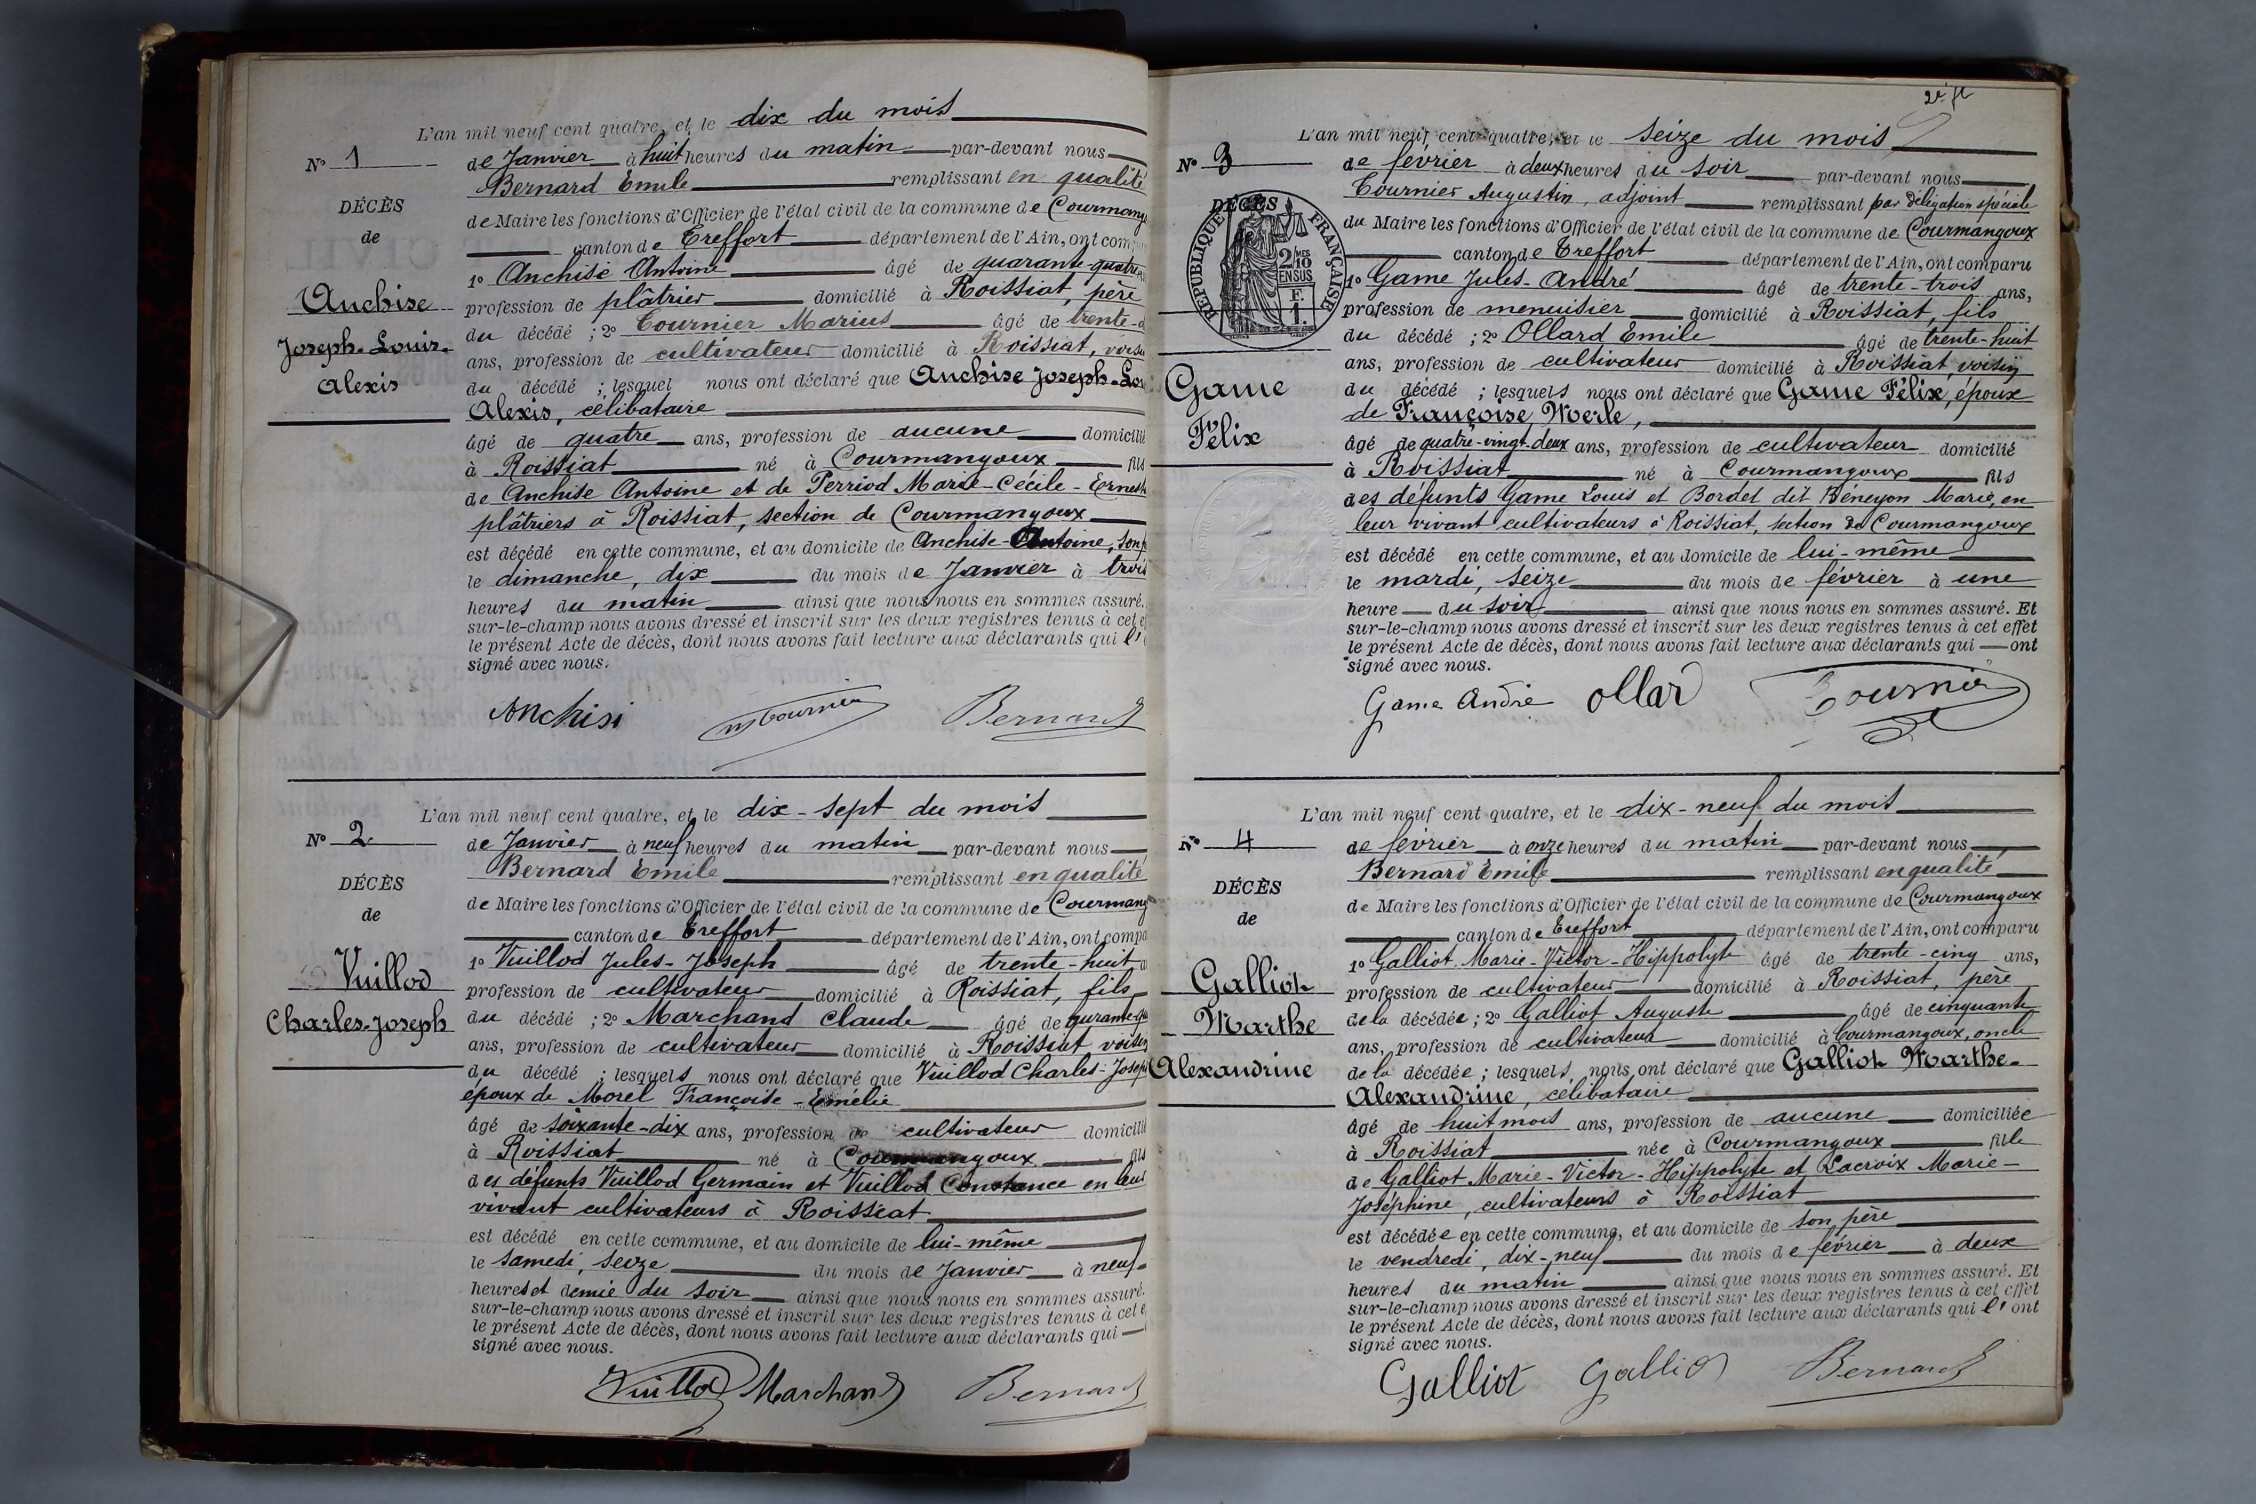 L'an mil neuf cent quatre, et le dix du mois
N° 1
de Janvier à huit heures du matin par-devant nous
Bernard Emile remplissant en qualité
DÉCÈS
de Maire les fonctions d'Officier de l'état civil de la commune de Courmang
de
canton de Treffort département de l'Ain, ont comp
1° Anchise Antoine âgé de quarante-quatre
Anchise
profession de plâtrier domicilié à Roissiat, père
du décédé ; 2° Tournier Marius âgé de trente-
Joseph-Louis-
ans, profession de cultivateur domicilié à Roissiat, voisin
Alexis
du décédé ; lesquel nous ont déclaré que Anchise Joseph-Lou
Alexis, célibataire
âgé de quatre ans, profession de aucune domicilié
à Roissiat né à Courmangoux fils
de Anchise Antoine et de Perriod Marie-Cécile-Ernest
plâtriers à Roissiat, section de Courmangoux
est décédé en cette commune, et au domicile de Anchise-Antoine, son
le dimanche, dix du mois de Janvier à trois
heures du matin ainsi que nous nous en sommes assuré.
sur-le-champ nous avons dressé et inscrit sur les deux registres tenus à cet e
le présent Acte de décès, dont nous avons fait lecture aux déclarants qui l'
signé avec nous.
Anchisi M Tournier Bernard
L'an mil neuf cent quatre, et le dix-sept du mois
N° 2
de Janvier à neuf heures du matin par-devant nous
Bernard Emile remplissant en qualité
DÉCÈS
de Maire les fonctions d'Officier de l'état civil de la commune de Courmang
de
canton de Treffort département de l'Ain, ont compa
1° Vuillod Jules-Joseph âgé de trente-huit a
Vuillod
profession de cultivateur domicilié à Roissiat, fils
Charles-Joseph
du décédé ; 2° Marchand Claude âgé de qurante-qu
ans, profession de cultivateur domicilié à Roissiat voisin
du décédé ; lesquels nous ont déclaré que Vuillod Charles-Joseph
époux de Morel Françoise-Emélie
âgé de soixante-dix ans, profession de cultivateur domicilié
à Roissiat né à Courmangoux fils
des défunts Vuillod Germain et Vuillod Constance en leur
vivant cultivateurs à Roissiat
est décédé en cette commune, et au domicile de lui-même
le samedi, seize du mois de Janvier à neuf
heures et demie du soir ainsi que nous nous en sommes assuré.
sur-le-champ nous avons dressé et inscrit sur les deux registres tenus à cet e
le présent Acte de décès, dont nous avons fait lecture aux déclarants qui
signé avec nous.
Vuillod Marchand Bernard
2e ft
L'an mil neuf cent quatre, et le seize du mois
N° 3
de février à deux heures du soir par-devant nous
Tournier Augustin, adjoint remplissant par délégation spéciale
DÉCÈS
de
RÉPUBLIQUE FRANÇAISE
2 MES
10
EN SUS
F.
1.
du Maire les fonctions d'Officier de l'état civil de la commune de Courmangoux
canton de Treffort département de l'Ain, ont comparu
1° Game Jules-André âgé de trente-trois ans,
profession de menuisier domicilié à Roissiat, fils
du décédé ; 2° Ollard Emile âgé de trente-huit
ans, profession de cultivateur domicilié à Roissiat, voisin
Game
du décédé ; lesquels nous ont déclaré que Game Félix, époux
de Françoise Morle,
Félix
âgé de quatre-vingt-deux ans, profession de cultivateur domicilié
à Roissiat né à Courmangoux fils
des défunts Game Louis et Bordet dit Béneyon Marie, en
leur vivant cultivateurs à Roissiat, section de Courmangoux
est décédé en cette commune, et au domicile de lui-même
le mardi, seize du mois de février à une
heure du soir ainsi que nous nous en sommes assuré. Et
sur-le-champ nous avons dressé et inscrit sur les deux registres tenus à cet effet
le présent Acte de décès, dont nous avons fait lecture aux déclarants qui ont
signé avec nous.
Game André Ollar Tournier
L'an mil neuf cent quatre, et le dix-neuf du mois
N° 4
de février à onze heures du matin par-devant nous
Bernard Emile remplissant en qualité
DÉCÈS
de Maire les fonctions d'Officier de l'état civil de la commune de Courmangoux
de
canton de Treffort département de l'Ain, ont comparu
1° Galliot Marie-Victor-Hippolyte âgé de trente-cinq ans,
Galliot
profession de cultivateur domicilié à Roissiat, père
de la décédée ; 2° Galliot Auguste âgé de cinquante
Marthe
ans, profession de cultivateur domicilié à Courmangoux, oncle
Alexandrine
de la décédée ; lesquels nous ont déclaré que Galliot Marthe-
Alexandrine, célibataire
âgé de huit mois ans, profession de aucune domiciliée
à Roissiat née à Courmangoux fille
de Galliot Marie-Victor-Hippolyte et Lacroix Marie-
Joséphine, cultivateurs à Roissiat
est décédée en cette commune, et au domicile de son père
le vendredi, dix-neuf du mois de février à deux
heures du matin ainsi que nous nous en sommes assuré. Et
sur-le-champ nous avons dressé et inscrit sur les deux registres tenus à cet effet
le présent Acte de décès, dont nous avons fait lecture aux déclarants qui l'ont
signé avec nous.
Galliot Galliot Bernard